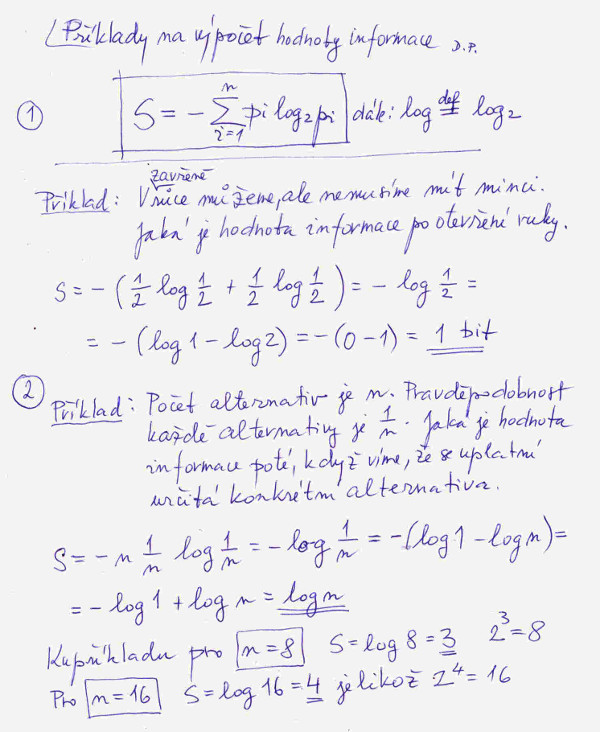 Příklady na výpočet hodnoty informace D.P.
① S = - ∑ⁿᵢ₌₁ pi log₂ pi dák: log ≝ log₂
zavřené
Příklad: V ruce můžeme, ale nemusíme mít minci.
Jaká je hodnota informace po otevření ruky.
S = - (1/2 log 1/2 + 1/2 log 1/2) = - log 1/2 =
= - (log 1 - log 2) = - (0 - 1) = 1 bit
② Příklad: Počet alternativ je n. Pravděpodobnost
každé alternativy je 1/n. Jaká je hodnota
informace poté, když víme, že se uplatní
určitá konkrétní alternativa.
S = - n 1/n log 1/n = - log 1/n = - (log 1 - log n) =
= - log 1 + log n = log n
Kupříkladu pro n = 8 S = log 8 = 3 2³ = 8
Pro n = 16 S = log 16 = 4 jelikož 2⁴ = 16